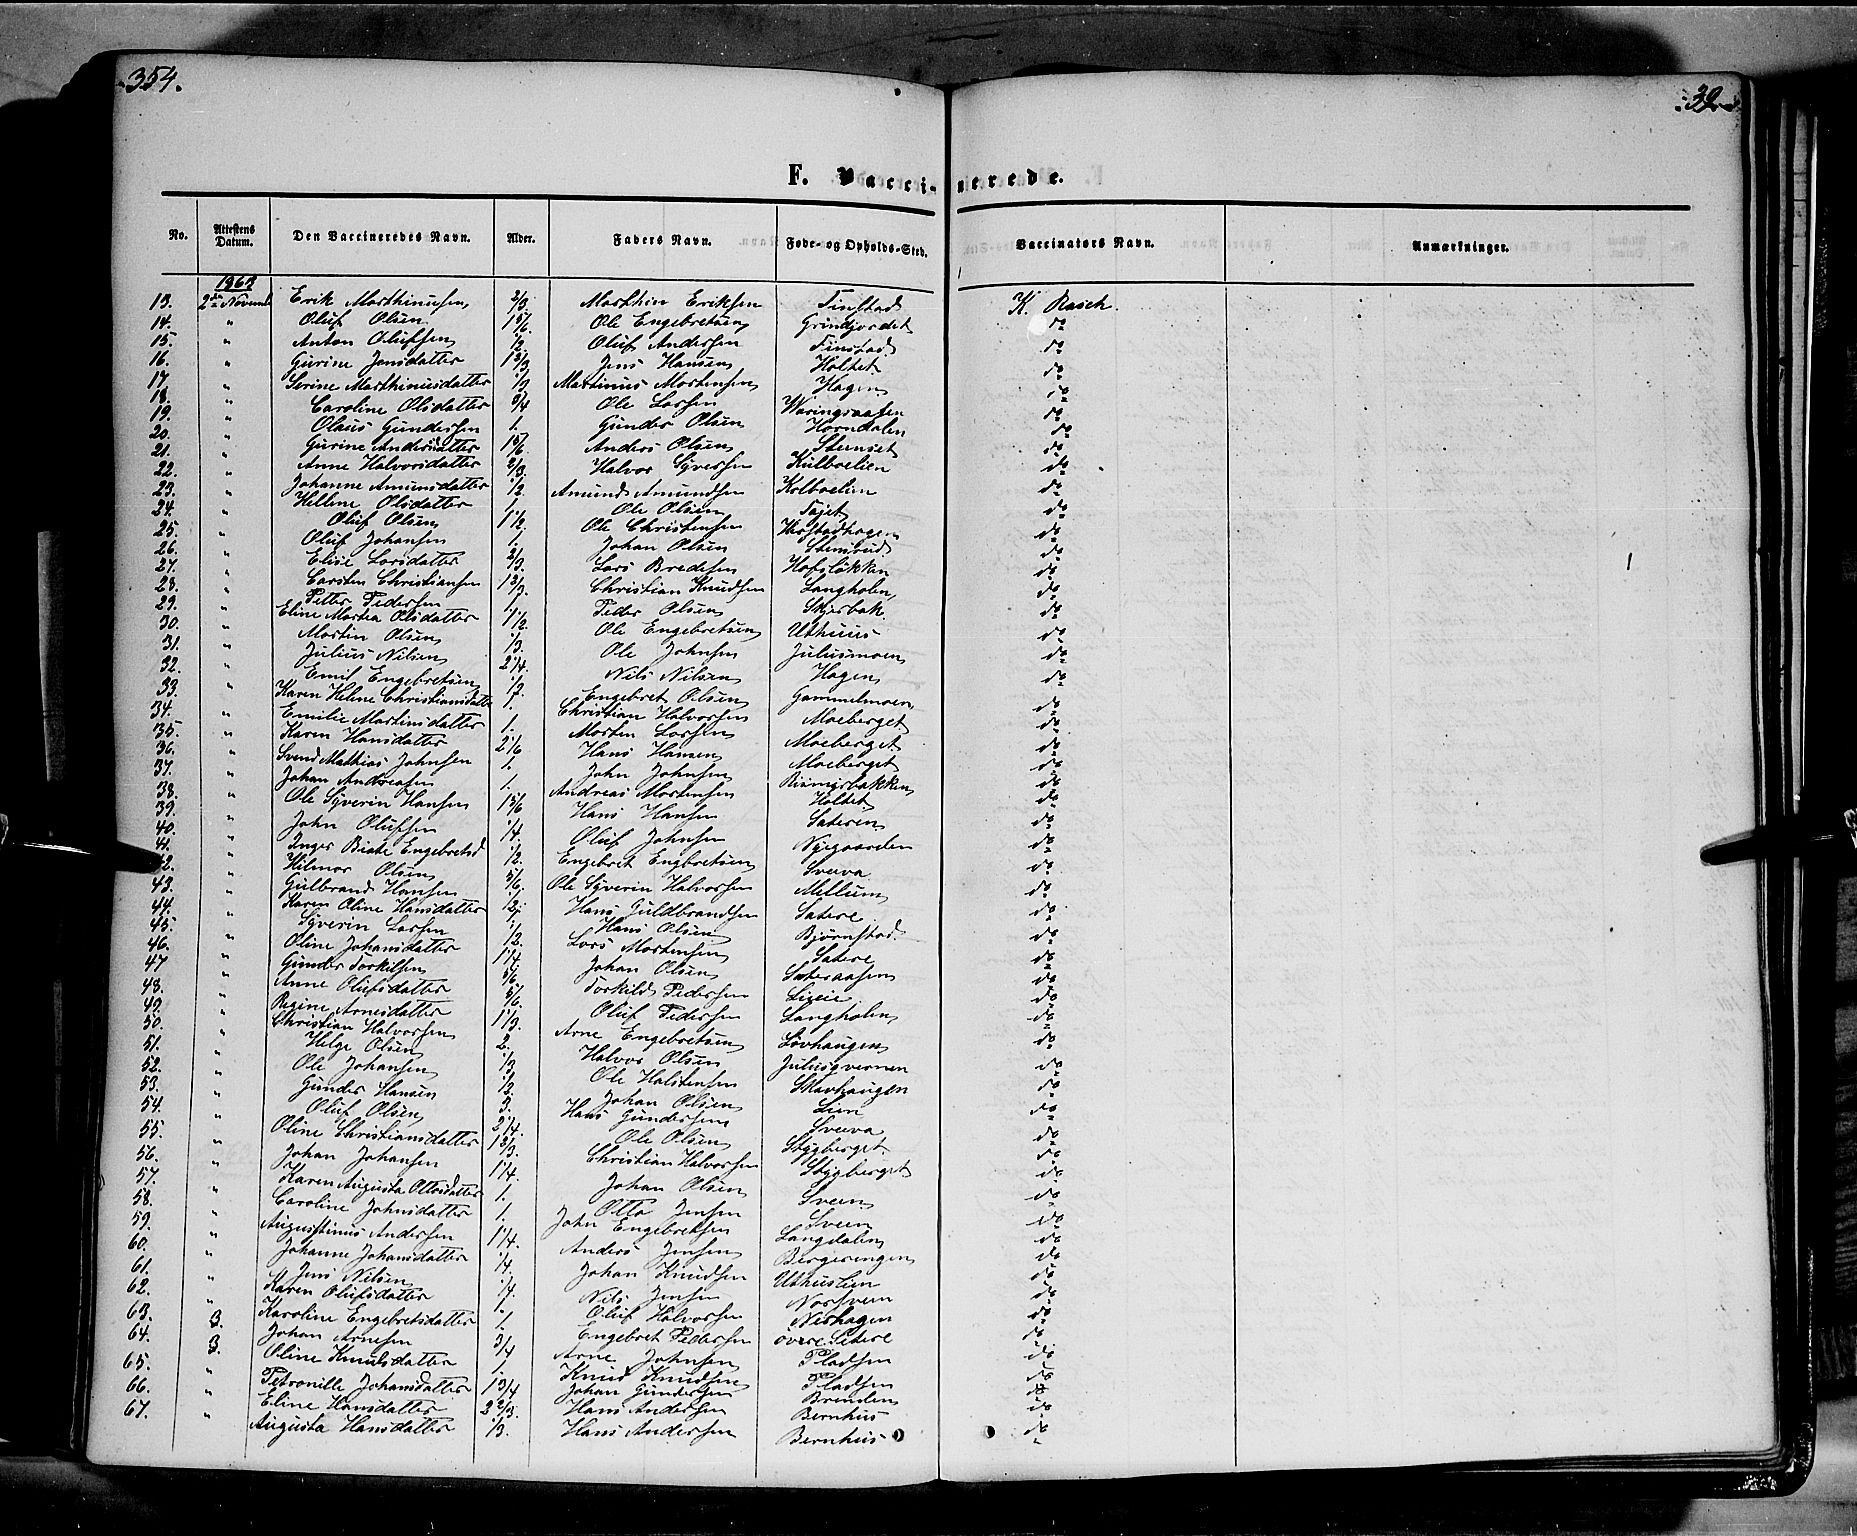 354.
F. Vaccinerede.
No. Attestens Datum. Den Vaccineredes Navn. Alder. Faders Navn. Føde- og Opholds-Sted. Vaccinators Navn. Anmærkninger.
13. 2den Novemb Erik Marthinusen 2/3. Marthin Eriksen Finstad K. Rasch.
14. " Oluf Olsen 1 5/6. Ole Engebretsen Grindjordet do
15. " Anton Olufsen 1/2. Oluf Andersen Finstad do
16. " Gurine Jensdatter 1 2/3 Jens Hansen Holtet do
17 " Serine Marthinusdatter 1/3 Martinus Mortensen Hagen do
18. " Caroline Olsdatter 3/4 Ole Larsen Waringsaasen do
19. " Olaus Gundersen 1. Gunder Olsen Horndalen do
20. " Gurine Andersdatter 1 5/6. Anders Olsen Stenset do
21. " Anne Halvorsdatter 2/3. Halvor Syversen Kulboelien do
22. " Johanne Amunsdatter 1/2. Amund Amundsen Kolboelien do
23. " Hellene Olsdatter 1. Ole Olsen Tajet do
24. " Oluf Olsen 1 1/2. Ole Christensen Hofstadhagen do
25. " Oluf Johansen 1. Johan Olsen Stensrud do
26. " Elise Larsdatter 2/3. Lars Bredesen Hofsløkken do
27. " Carsten Christiansen 1 2/3. Christian Knudsen Langholen do
28. " Petter Pedersen 1. Peder Olsen Skjerbak do
29. " Eline Martea Olsdatter 1 1/2. Ole Engebretsen Uthuus do
30. " Martin Olsen 1/3. Ole Johnsen Julusmoen do
31. " Julius Nilsen 2 1/4. Nils Nilsen Hagen do
32. " Emil Engebretsen 1/2. Engebret Olsen Gammelmoen do
33. " Karen Helne Christiansdatter 1. Christian Halvorsen Moeberget do
34. " Emilie Martinsdatter 1. Morten Larsen Moeberget do
35. " Karen Hansdatter 2 1/6 Hans Hansen Moeberget do
36. " Svend Mathias Johnsen 1. John Johnsen Risingsbakken do
37. " Johan Andreasen 1. Andreas Mortensen Holtet do
38. " Ole Syverin Hansen 1 5/6 Hans Hansen Sateren do
39. " John Olufsen 1/4. Oluf Johnsen Nygaarden do
40. " Inger Beate Engebretsd 1/2. Engebret Engbretsen Sveeva do
41. " Hilmar Olsen 5/6. Ole Syverin Halvorsen Mellum do
42. " Gulbrand Hansen Hans Guldbrandsen Satere do
43. " Karen Oline Hansdatter Hans Olsen Bjørnstad do
44. " Syverin Larsen 1/2. Lars Mortensen Satere do
45. " Oline Johansdatter 1 1/4 Johan Olsen Sateraasen do
46. " Gunder Torkilsen 5/6. Torkild Pedersen do
47 " Anne Olufsdatter 5/6. Oluf Pedersen Langholen do
48. " Regine Arnesdatter 1 1/3. Arne Engebretsen Løvhaugen do
49. " Christian Halvorsen 2. Halvor Olsen Julusqvernen do
50. " Helge Olsen 1/3 Ole Halstensen Skavhaugen do
51. " Ole Johansen 1/2. Johan Olsen Lien do
52. " Gunder Hansen 3. Hans Gundersen Sveeva do
53. " Oluf Olsen 2 1/4. Ole Olsen Stygberget do
54. " Oline Christiansdatter 1 2/3. Christian Halvorsen Stygberget do
55. " Johan Johansen 1 1/4. Johan Olsen Sveen do
56. " Karen Augusta Ottosdatter 1. Otto Jensen Sveen do
57. " Caroline Johnsdatter 1. John Engebretsen Langdalen do
58. " Augustinus Andersen 1 1/4. Anders Jensen Bergeringen do
59. " Johanne Johansdatter 1/4. Johan Knudsen Uthuslien do
60. " Jens Nilsen 1/4 Nils Jensen Norsveen do
61. " Karen Olufsdatter 1. Oluf Halvorsen Nerhagen do
62. " Karoline Engebretsdatter 1. Engebret Pedersen øvre Setere do
63. 3. Johan Arnesen 3/4 Arne Johnsen Pladsen do
64. 3. Oline Knudsdatter 1. Knud Knudsen Pladsen do
65. " Petronille Johansdatter 1 3/4 Johan Gundersen Brenden do
66. " Eline Hansdatter 2 2/3. Hans Andersen Bernhus do
67. " Augusta Hansdatter 1/3. Hans Andersen Bernhus do